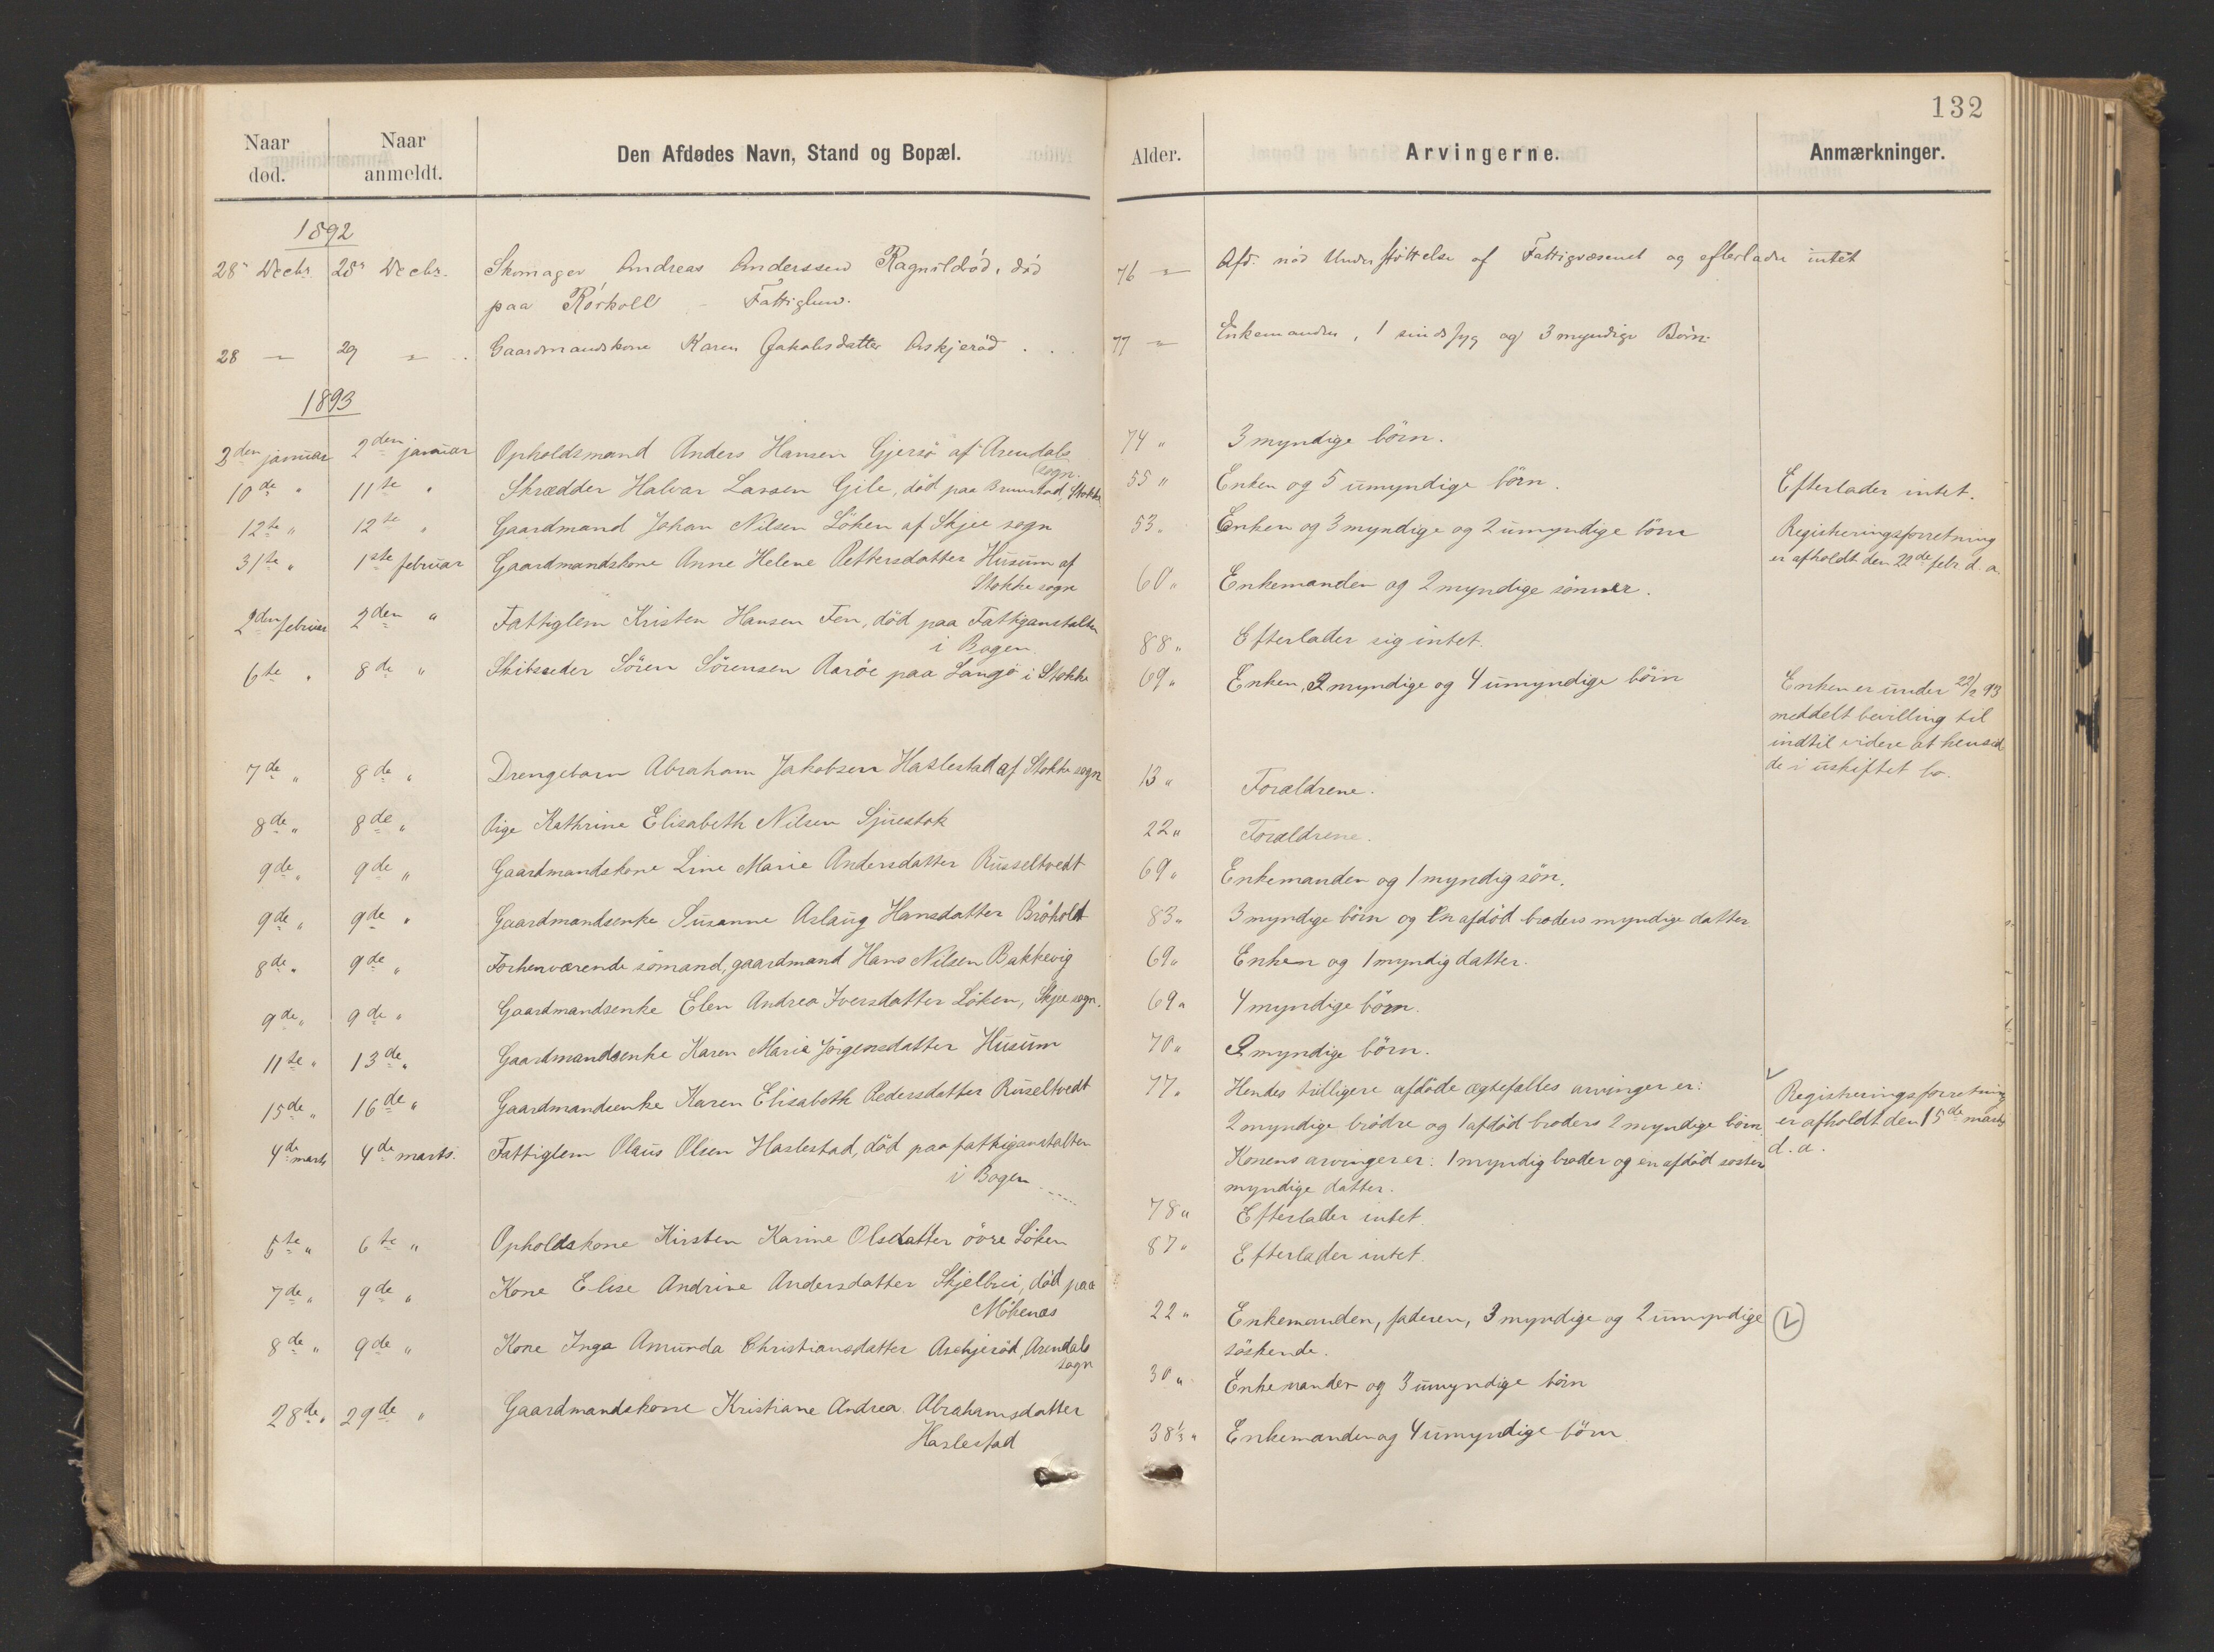 132
Naar død. Naar anmeldt. Den Afdødes Navn, Stand og Bopæl. Alder. Arvingerne. Anmærkninger.
1892
28 Decbr. 28 Decbr. Skomager Andreas Anderssen Ragnildrød, død 76 Afd. nød Understøttelse af Fattigvæsenet og efterlader intet
paa Rørkoll - Fattiglem.
28 29 Gaardmandskone Karen Jakobsdatter Askjerød 77 Enkemanden, 1 sindssyg og 3 myndige Børn.
1893
2den januar 2den januar Opholdsmand Anders Hansen Gjersø af Arendals sogn. 74 " 3 myndige börn.
10de " 11te " Skrædder Halvar Larsen Gile, död paa Brunstad, Stokke 55 " Enken og 5 umyndige börn. Efterlader intet.
12te " 12te " Gaardmand Johan Nilsen Löken af Skjee sogn 53 " Enken og 3 myndige og 2 umyndige börn Registreringsforretning
er afholdt den 22de febr d. a.
31te " 1ste februar Gaardmandskone Anne Helene Pettersdatter Husum af
Stokke sogn 60 " Enkemanden og 2 myndige sönner.
2den februar 2den " Fattiglem Kristen Hansen Fen, död paa Fattiganstalten
i Bogen. 88 " Efterlader sig intet.
6te " 8de " Skibsreder Sören Sörensen Aaröe paa Langö i Stokke 69 " Enken, 2 myndige og 4 umyndige börn Enken er under 22/2 93
meddelt bevilling til
indtil videre at hensid
de i uskiftet bo.
7de " 8de " Drengebarn Abraham Jakobsen Haslestad af Stokke sogn 13 " Forældrene.
8de " 8de " Pige Kathrine Elisabeth Nilsen Sjuestok 22 " Forældrene.
9de " 9de " Gaardmandskone Line Marie Andersdatter Russeltvedt 69 " Enkemanden og 1 myndig sön.
9de " 9de " Gaardmandsenke Susanne Aslaug Hansdatter Bröholdt 83 " 3 myndige börn og en afdöd broders myndige datter
8de " 9de " Forhenværende sömand, gaardmand Hans Nilsen Bakkevig 69 " Enken og 1 myndig datter.
9de " 9de " Gaardmandsenke Elen Andrea Iversdatter Löken, Skjee sogn. 69 " 4 myndige börn.
11te " 13de " Gaardmandsenke Karen Maria Jörgensdatter Husum 70 " 2 myndige börn.
15de " 16de " Gaardmandsenke Karen Elisabeth Pedersdatter Ruseltvedt 77 " Hendes tidligere afdöde ægtefælles arvinger er: Registreringsforretning
2 myndige brödre og 1 afdöd broders 2 myndige börn. er afholdt den 15de marts
Konens arvinger er: 1 myndig broder og en afdöd søsters d. a.
myndige datter.
4de marts 4de marts. Fattiglem Olaus Olsen Haslestad, död paa fattiganstalten
i Bogen 78 " Efterlader intet.
6te " 6te " Opholdskone Kirsten Karine Olsdatter övre Löken 87 " Efterlader intet.
7de " 9de " Kone Elise Andrine Andersdatter Skjelbrei, död paa
Mökenæs 22 " Enkemanden, faderen, 3 myndige og 2 umyndige
söskende.
8de " 9de " Kone Inga Amunda Christiansdatter Aschjeröd, Arendals
sogn 30 " Enkemanden og 3 umyndige börn
28de " 29de " Gaardmandskone Kristiane Andrea Abrahamsdatter
Haslestad 38 1/3 " Enkemanden og 4 umyndige börn